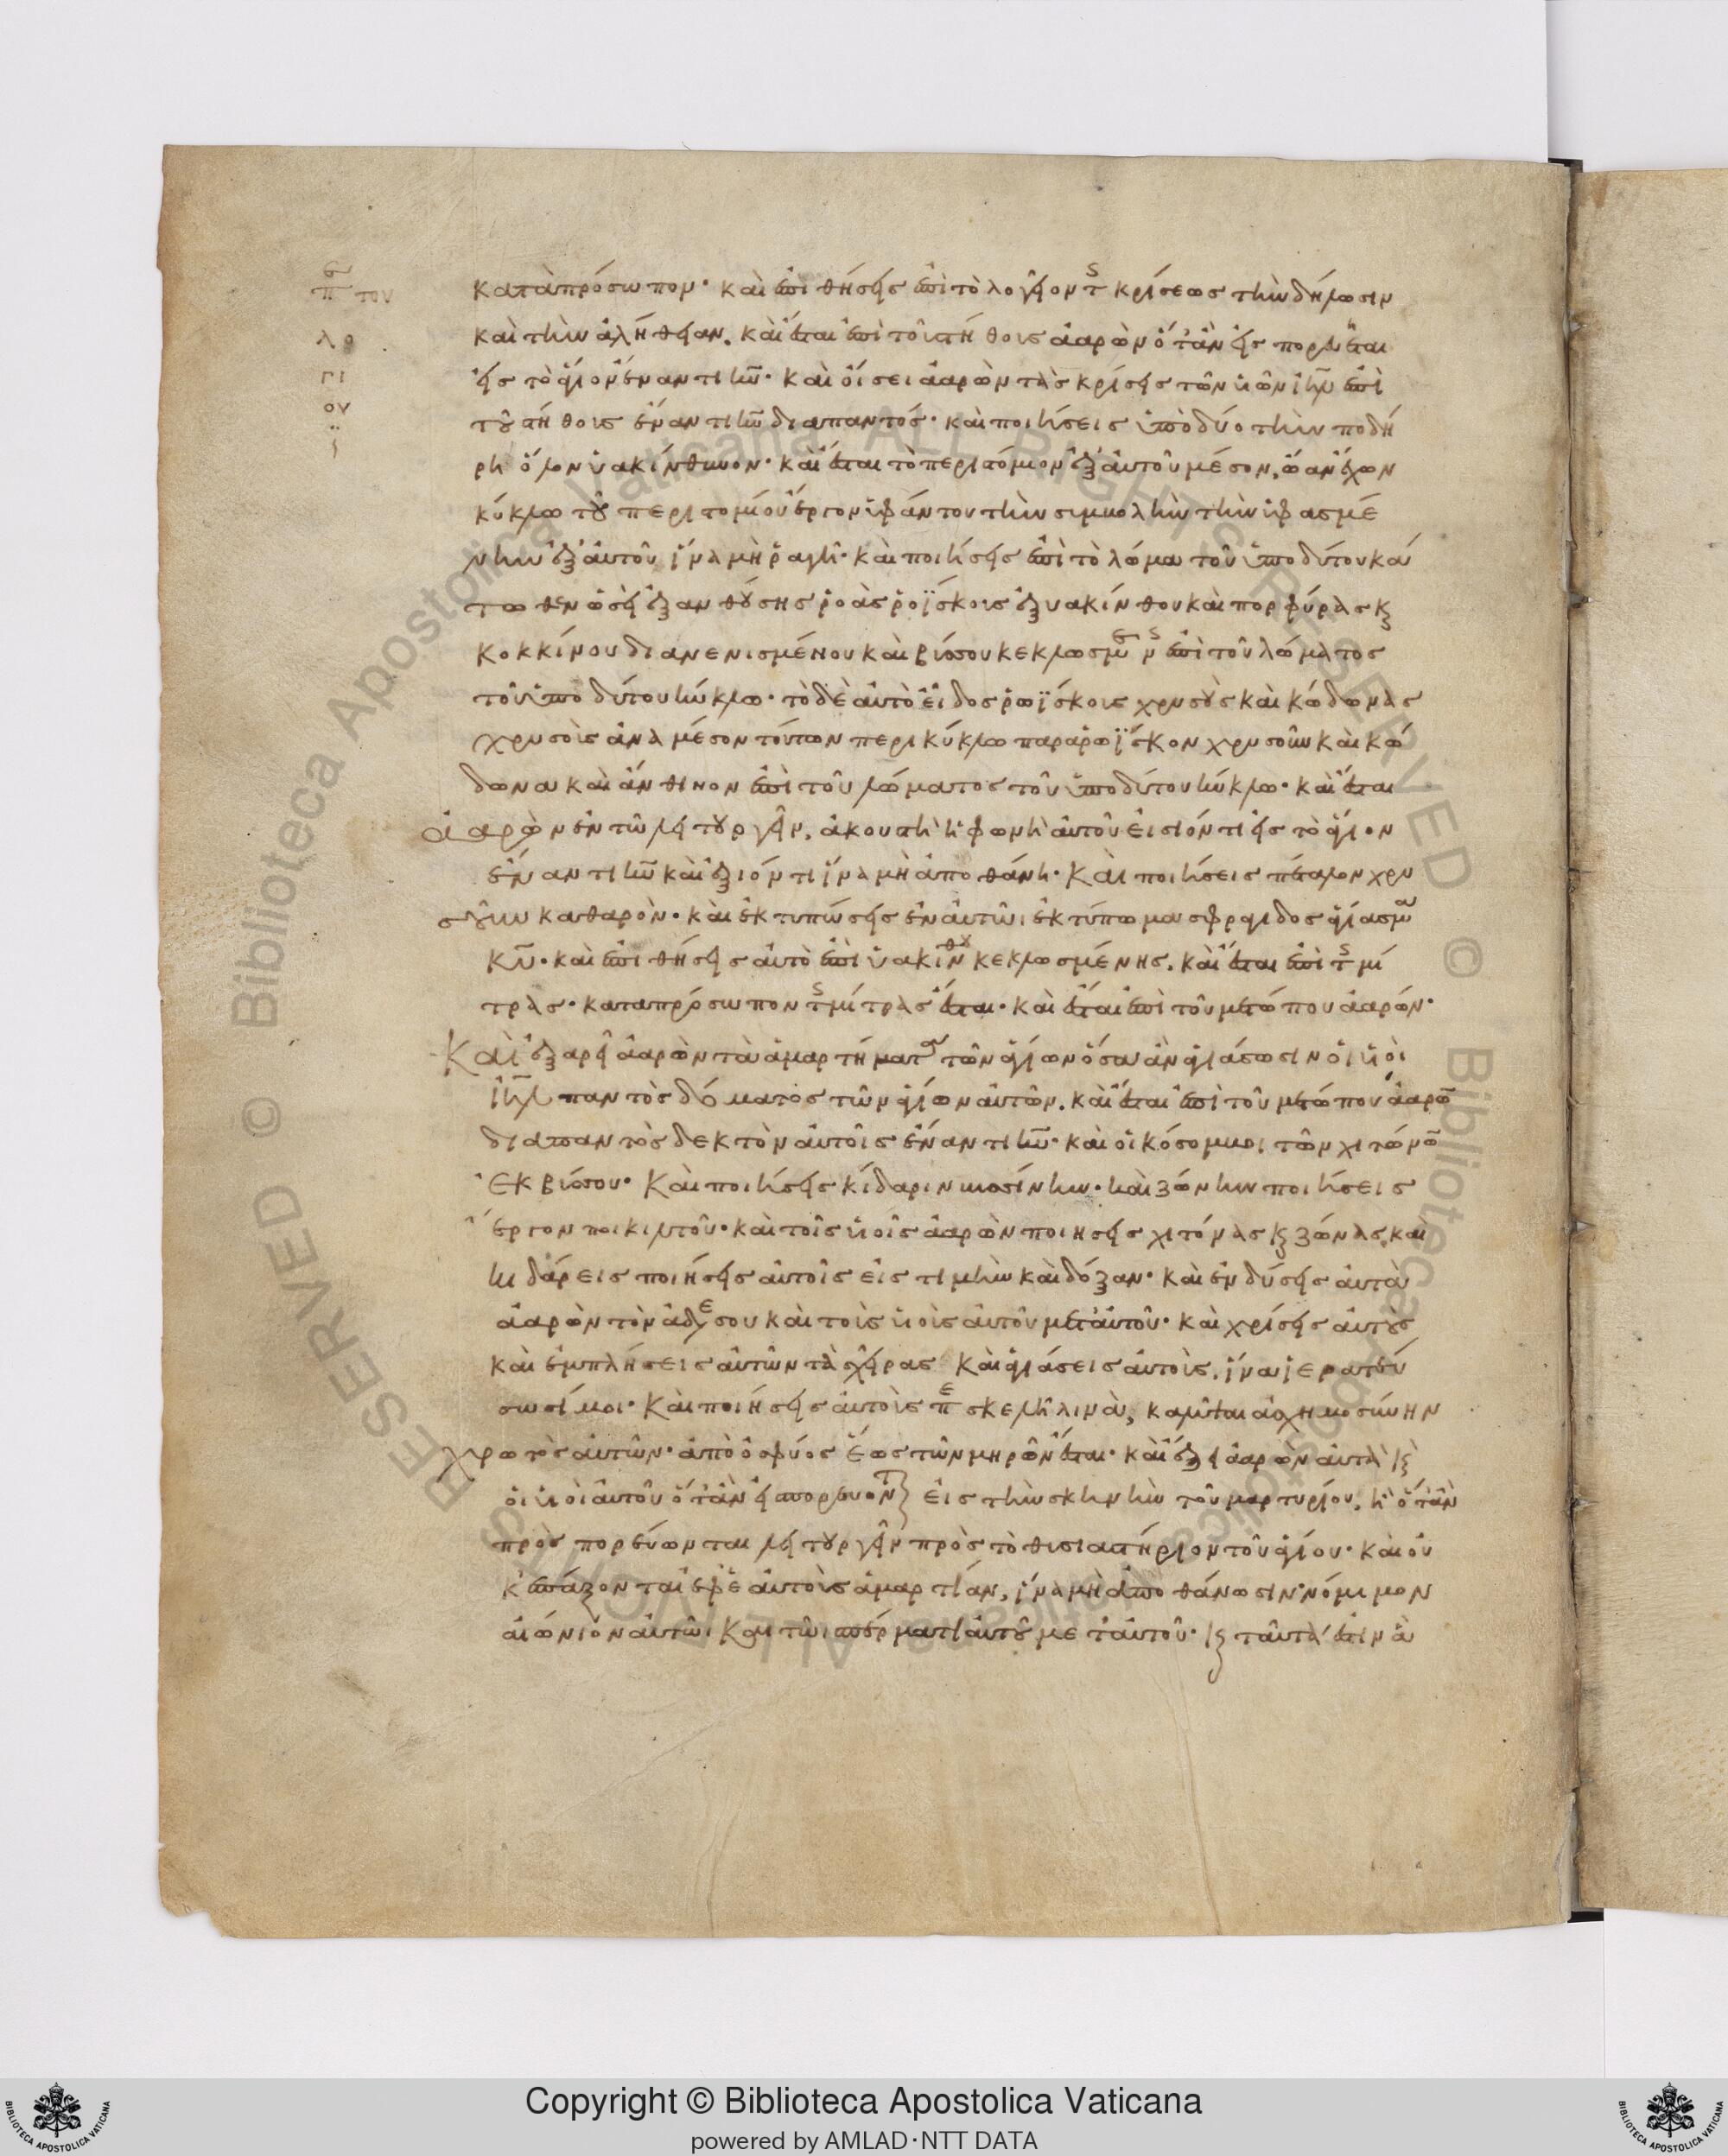 κατὰ πρόσωπον· καὶ ἐπιθήσεις ἐπὶ τὸ λογεῖον τ(ης) κρίσεως τὴν δήλωσιν
καὶ τὴν ἀλήθειαν. καὶ ἔσται ἐπὶ τοῦ στήθους ἀαρὼν ὅταν εἰσπορεύεται
εἰς τὸ ἅγιον ἔναντι κυ· καὶ οἴσει ἀαρὼν τὰς κρίσεις τῶν υἱῶν ιηλ ἐπὶ
τοῦ στήθους ἔναντι κυ διαπαντός· καὶ ποιήσεις ὑποδύτην ποδή
ρη ὅλον ὑακίνθινον· καὶ ἔσται τὸ περιστόμιον ἐξ αὐτοῦ μέσον, ὤαν ἔχων
κύκλω τοῦ περιστομίου ἔργον ὑφάντου τὴν συμβολὴν τὴν ὑφασμέ
νην ἐξ αὐτοῦ ἵνα μὴ ραγῆ· καὶ ποιήσεις ἐπὶ τὸ λῶμα τοῦ ὑποδύτου κά
τωθεν ὡσεὶ ἐξανθούσης ῥοὰς ῥοΐσκους ἐξ υακίνθου καὶ πορφύρας κ
κοκκίνου διανενισμένου καὶ βύσσου κεκλωσμ ἐπὶ τοῦ λώματος
τοῦ ὑποδύτου κύκλω· τὸ δὲ αὐτὸ εἶδος ῥωΐσκους χρυσοὺς καὶ κώδωνας
χρυσοὶς ἀνα μέσον τούτων περικύκλω παρα ῥωΐσκον χρυσοῦν καὶ κώ
δωνα καὶ ἄνθινον ἐπὶ τοῦ λώματος τοῦ ὑποδύτου κύκλω· καὶ ἔσται
ἀαρὼν ἐν τῶ λειτουργεῖν, ἀκουστὴ ἡ φωνὴ αὐτοῦ εἰσιόντι εἰς τὸ ἅγιον
ἔναντι κυ καὶ ἐξιόντι ἵνα μὴ ἀποθάνη· Καὶ ποιήσεις πέταλον χρυ
σοῦν καθαρὸν· καὶ ἐκτυπώσεις ἐν αὐτῶι ἐκτύπωμα σφραγιδος ἁγίασμα
κυ· καὶ ἐπιθήσεις αὐτὸ ἐπὶ ὑακίνθου κεκλωσμένης. καὶ ἔσται ἐπὶ τ(ης) μί
τρας· κατα πρόσωπον τ(ης) μίτρας ἔσται· καὶ ἔσται ἐπὶ τοῦ μετώπου ἀαρών·
Καὶ ἐξαρεῖ ἀαρὼν τὰ ἁμαρτήματα τῶν ἁγίων ὅσα ἂν ἁγιάσωσιν οἱ υἱοὶ
ιηλ παντὸς δόματος τῶν ἁγίων αὐτῶν. καὶ ἔσται ἐπὶ τοῦ μετώπου ἀαρῶ
διαπαντὸς δεκτὸν αὐτοῖς ἔναντι κυ· καὶ οἱ κόσομβοι τῶν χιτώνω
ἐκ βύσσου· Καὶ ποιήσεις κίδαριν βυσίνην· καὶ ζώνην ποιήσεις
ἔργον ποικιλτοῦ· καὶ τοῖς υἱοῖς ἀαρὼν ποιησεις χιτόνας κ ζώνας καὶ
κιδάρεις ποιήσεις αὐτοῖς εἰς τιμὴν καὶ δόξαν· καὶ ἐνδύσεις αὐτὰ
ἀαρὼν τὸν ἀδε σου καὶ τοὶς υἱοὶς αὐτοῦ μετ αὐτοῦ· καὶ χρίσεις αὐτοὺς
καὶ ἐμπλήσεις αὐτῶν τὰ χεῖρας καὶ ἁγιάσεις αὐτοὶς, ἵνα ἱερατεύ
σωσί μοι· Καὶ ποιήσεις αὐτοὶς πε σκελῆ λινὰ, καλύψαι ἀσχημοσύνην
χρωτὸς αὐτῶν· ἀπὸ ὀσφύος ἕως τῶν μηρῶν ἔσται· καὶ ἕξει ἀαρὼν αὐτὰ κ
οἱ υἱοὶ αὐτοῦ ὅταν εἰσπορευον εἰς τὴν σκηνὴν τοῦ μαρτυρίου, ἢ ὅταν
πρὸς πορεύωνται λειτουργεῖν πρὸς τὸ θυσιαστήριον τοῦ ἁγίου· καὶ οὐ
κ ἐπάξονται ἐφ ἑαυτοὶς ἁμαρτίαν, ἵνα μὴ ἀποθάνωσιν· νόμιμον
αἰώνιον αὐτῶι Καὶ τῶι σπέρματι αὐτοῦ μετ αὐτοῦ· κ ταῦτά ἐστιν ἃ